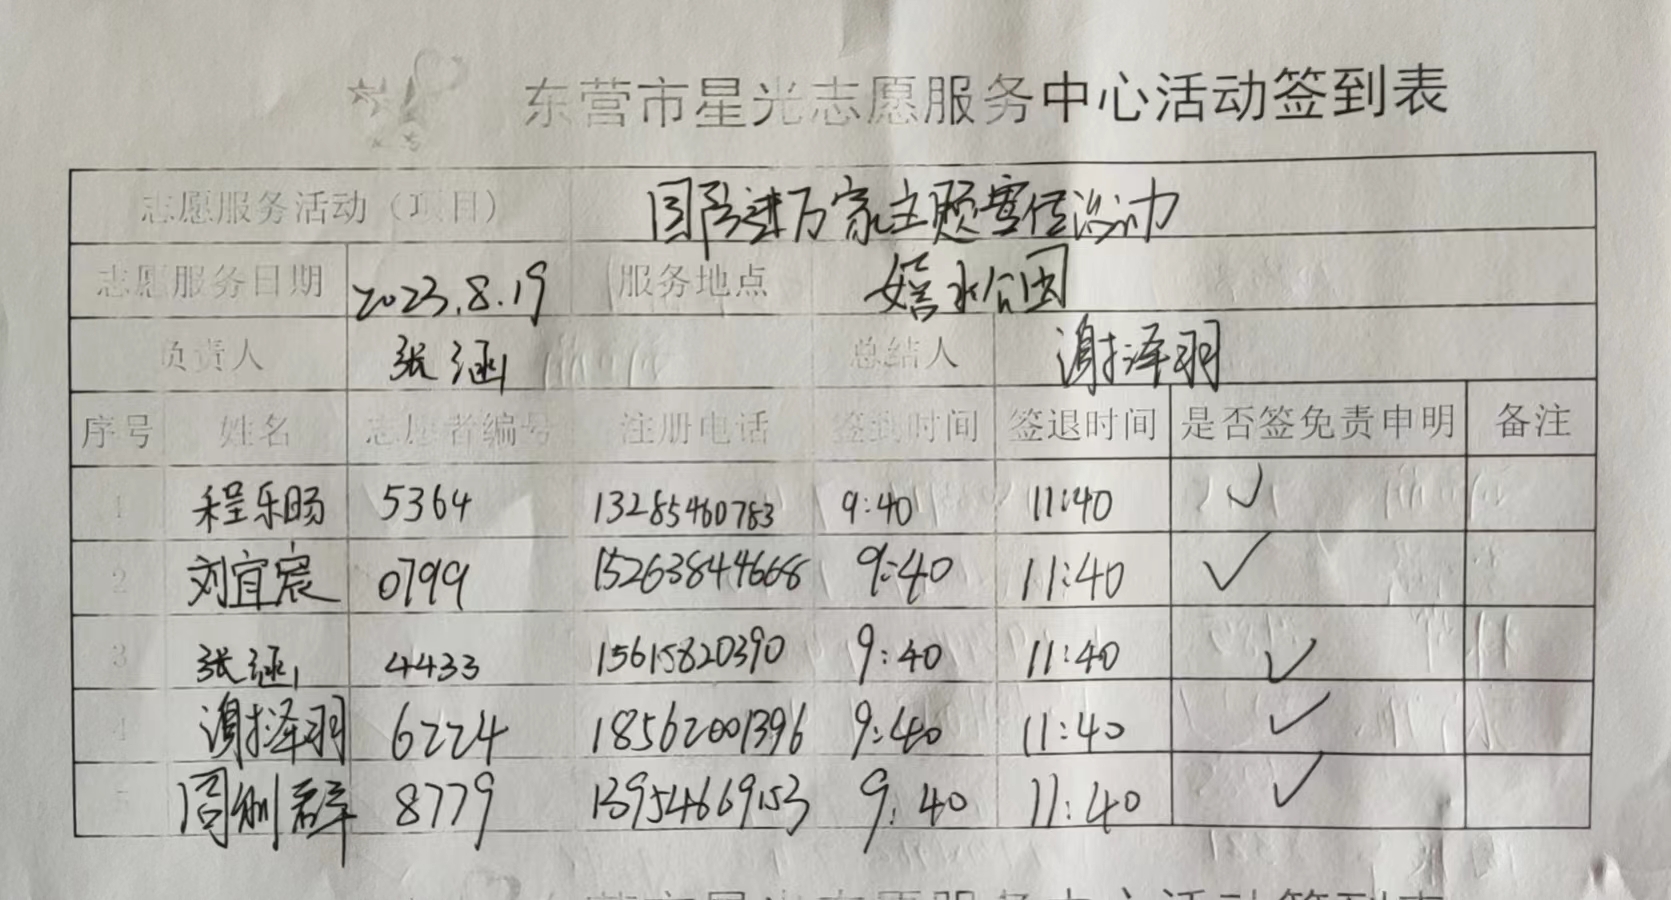 东营市星光志愿服务中心活动签到表
志愿服务活动（项目） 国防进万家主题宣传活动
志愿服务日期 2023.8.19 服务地点 嬉水公园
负责人 张涵 总结人 谢泽羽
序号 姓名 志愿者编号 注册电话 签到时间 签退时间 是否签免责申明 备注
1 程乐旸 5364 13285460783 9:40 11:40 ✓
2 刘宜宸 0799 15263844668 9:40 11:40 ✓
3 张涵 4433 15615820390 9:40 11:40 ✓
4 谢泽羽 6224 18562001396 9:40 11:40 ✓
5 周刚群 8779 13954669153 9:40 11:40 ✓
东营市星光志愿服务中心活动签到表